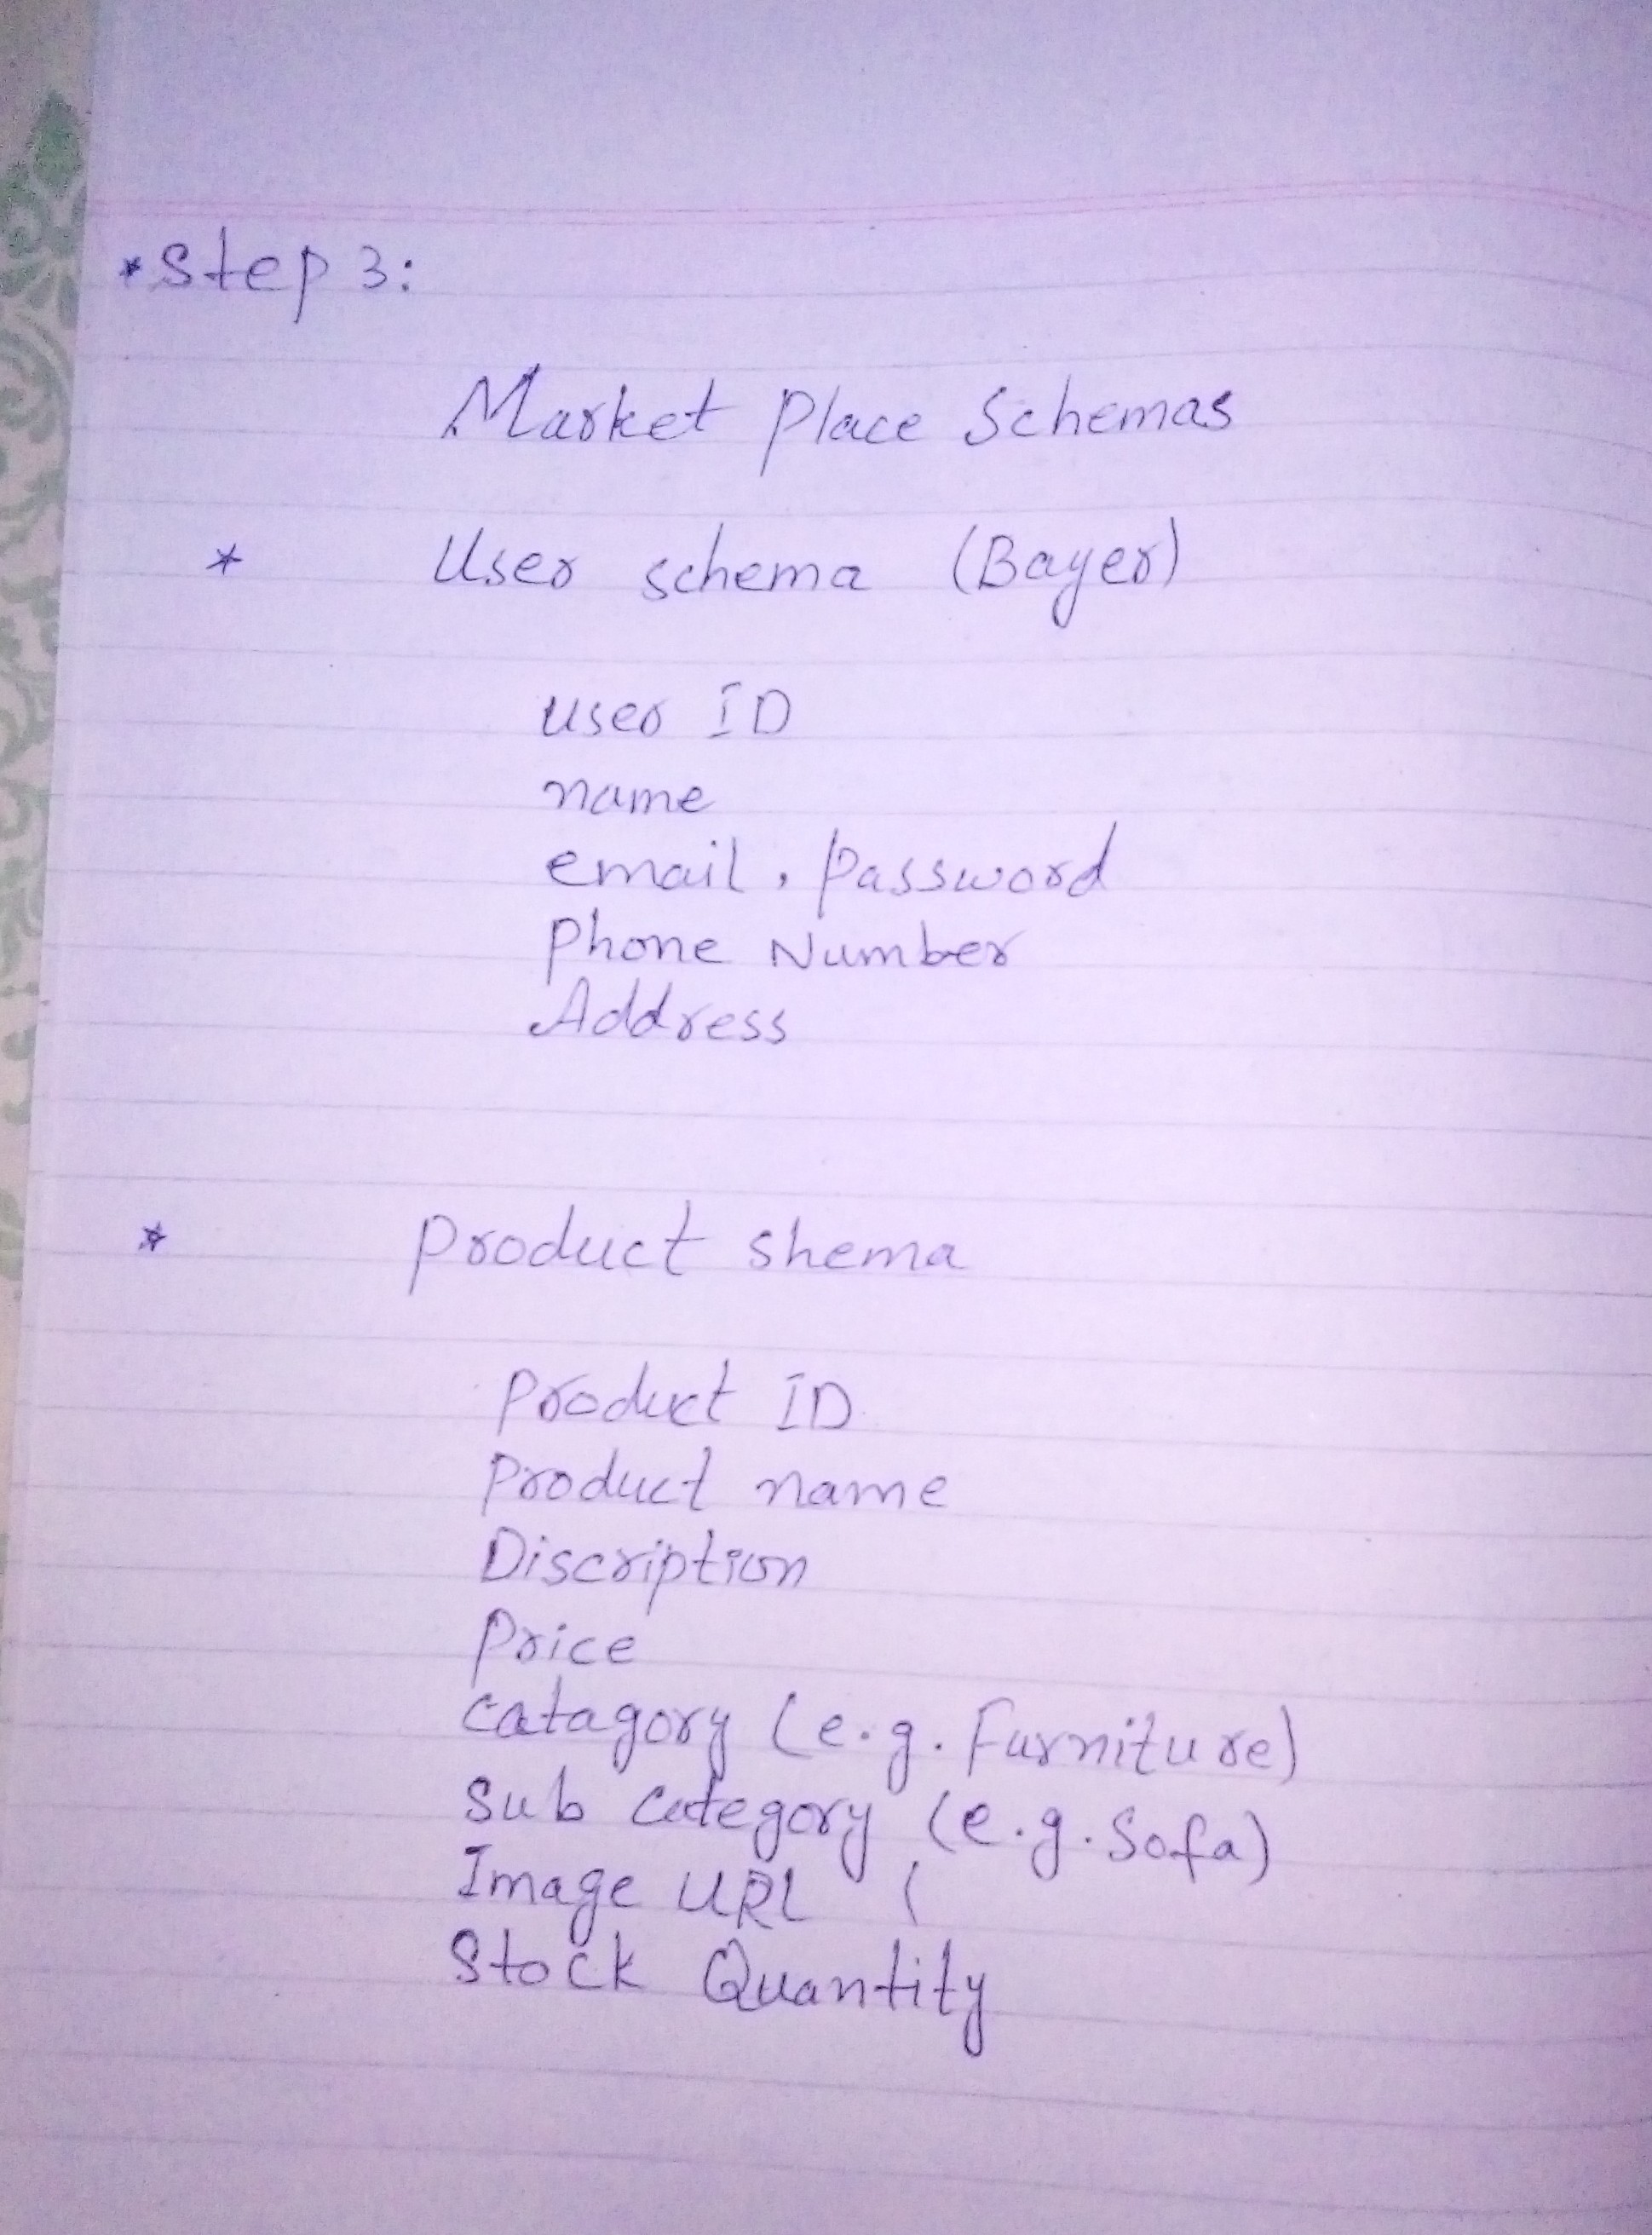 * Step 3:
Market Place Schemas
* User schema (Bayer)
user ID
name
email, Password
Phone Number
Address
* Product shema
Product ID
Product name
Discription
Price
catagory (e.g. Furniture)
Sub category (e.g. Sofa)
Image URL (
Stock Quantity